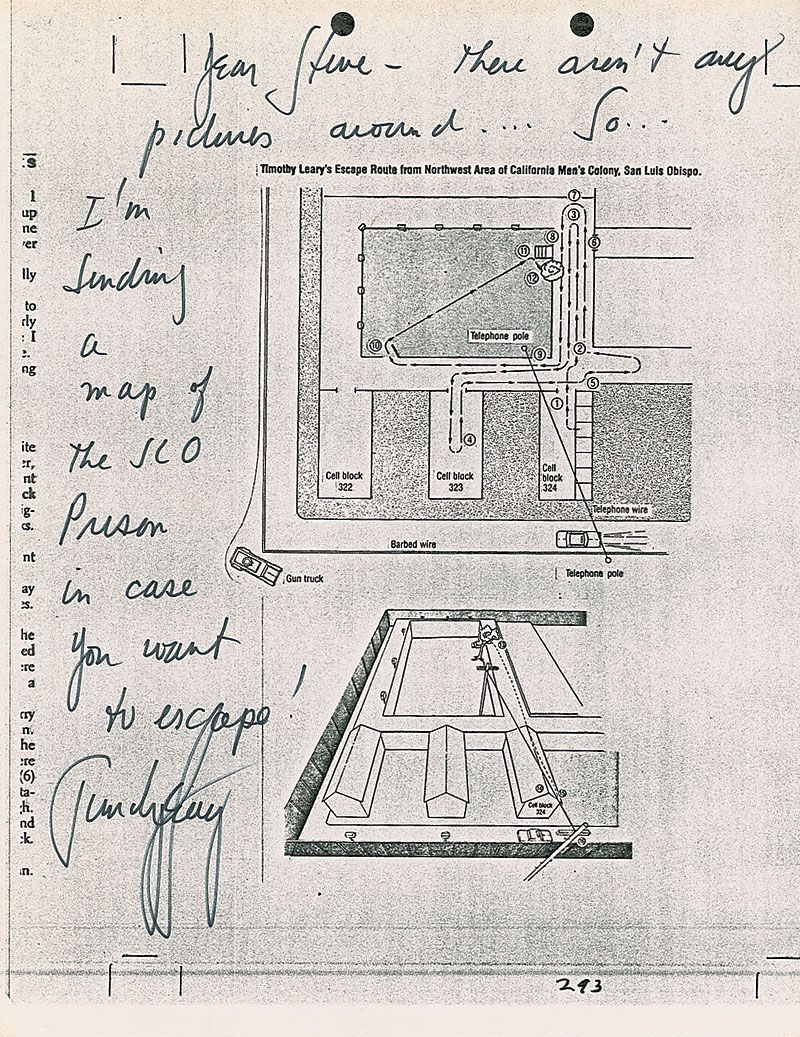 Dear Steve – There aren't any
pictures around.... So...
Timothy Leary's Escape Route from Northwest Area of California Men's Colony, San Luis Obispo.
I'm
Sending
a
map of
the SLO
Prison
in case
You want
to escape!
Timothy Leary
s
1
up
ne
ver
lly
to
rly
I
ng
ite
er,
nt
ck
ig-
cs.
nt
ay
es.
he
ed
ere
a
rry
n.
he
ere
(6)
ta-
h.
nd
k.
n.
7
3
8
6
11
12
Telephone pole
10
9
2
5
1
4
Cell block
322
Cell block
323
Cell
block
324
Telephone wire
Barbed wire
Gun truck
Telephone pole
Cell block
324
293